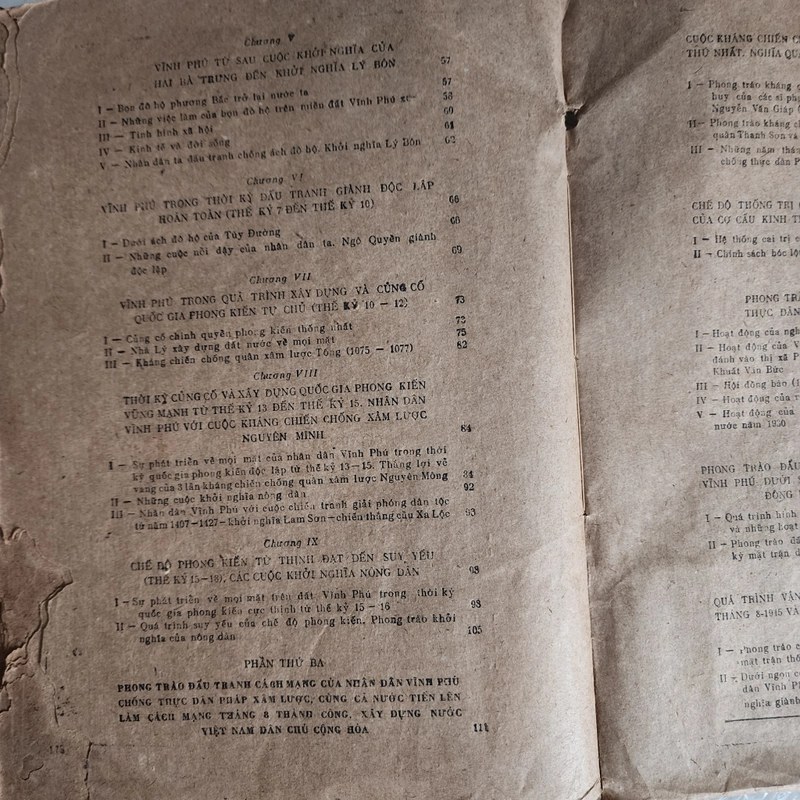 Chương V
VĨNH PHÚ TỪ SAU CUỘC KHỞI NGHĨA CỦA
HAI BÀ TRƯNG ĐẾN KHỞI NGHĨA LÝ BÔN 57
I — Bọn đô hộ phương Bắc trở lại nước ta 57
II — Những việc làm của bọn đô hộ trên miền đất Vĩnh Phú 58
III — Tình hình xã hội 60
IV — Kinh tế và đời sống 61
V — Nhân dân ta đấu tranh chống ách đô hộ. Khởi nghĩa Lý Bôn 62
Chương VI
VĨNH PHÚ TRONG THỜI KỲ ĐẤU TRANH GIÀNH ĐỘC LẬP
HOÀN TOÀN (THẾ KỶ 7 ĐẾN THẾ KỶ 10) 66
I — Dưới ách đô hộ của Tùy Đường 66
II — Những cuộc nổi dậy của nhân dân ta. Ngô Quyền giành
độc lập 69
Chương VII
VĨNH PHÚ TRONG QUÁ TRÌNH XÂY DỰNG VÀ CỦNG CỐ
QUỐC GIA PHONG KIẾN TỰ CHỦ (THẾ KỶ 10 — 12) 73
I — Củng cố chính quyền phong kiến thống nhất 73
II — Nhà Lý xây dựng đất nước về mọi mặt 75
III — Kháng chiến chống quân xâm lược Tống (1075 — 1077) 82
Chương VIII
THỜI KỲ CỦNG CỐ VÀ XÂY DỰNG QUỐC GIA PHONG KIẾN
VỮNG MẠNH TỪ THẾ KỶ 13 ĐẾN THẾ KỶ 15. NHÂN DÂN
VĨNH PHÚ VỚI CUỘC KHÁNG CHIẾN CHỐNG XÂM LƯỢC
NGUYÊN MINH 84
I — Sự phát triển về mọi mặt của nhân dân Vĩnh Phú trong thời
kỳ quốc gia phong kiến độc lập từ thế kỷ 13—15. Thắng lợi vẻ
vang của 3 lần kháng chiến chống quân xâm lược Nguyên Mông 84
II — Những cuộc khởi nghĩa nông dân 92
III — Nhân dân Vĩnh Phú với cuộc chiến tranh giải phóng dân tộc
từ năm 1407—1427—khởi nghĩa Lam Sơn—chiến thắng cầu Xa Lộc 93
Chương IX
CHẾ ĐỘ PHONG KIẾN TỪ THỊNH ĐẠT ĐẾN SUY YẾU
(THẾ KỶ 15—18), CÁC CUỘC KHỞI NGHĨA NÔNG DÂN 98
I — Sự phát triển về mọi mặt trên đất Vĩnh Phú trong thời kỳ
quốc gia phong kiến cực thịnh từ thế kỷ 15 — 16 98
II — Quá trình suy yếu của chế độ phong kiến. Phong trào khởi
nghĩa của nông dân 105
PHẦN THỨ BA
PHONG TRÀO ĐẤU TRANH CÁCH MẠNG CỦA NHÂN DÂN VĨNH PHÚ
CHỐNG THỰC DÂN PHÁP XÂM LƯỢC, CÙNG CẢ NƯỚC TIẾN LÊN
LÀM CÁCH MẠNG THÁNG 8 THÀNH CÔNG, XÂY DỰNG NƯỚC
VIỆT NAM DÂN CHỦ CỘNG HÒA 111
CUỘC KHÁNG CHIẾN
THỨ NHẤT. NGHĨA QUÂ
I — Phong trào kháng
huy của các sĩ ph
Nguyễn Văn Giáp
II — Phong trào kháng ch
quân Thanh Sơn và
III — Những năm thán
chống thực dân P
CHẾ ĐỘ THỐNG TRỊ
CỦA CƠ CẤU KINH T
I — Hệ thống cai trị c
II — Chính sách bóc lộ
PHONG TRÀ
THỰC DÂN
I — Hoạt động của ngh
II — Hoạt động của V
đánh vào thị xã P
Khuất Văn Bức
III — Hội đồng bào (1
IV — Hoạt động của
V — Hoạt động của
nước năm 1930
PHONG TRÀO ĐẤU
VĨNH PHÚ DƯỚI
ĐÔNG
I — Quá trình hình
và những hoạt
II — Phong trào đấ
kỳ mặt trận d
QUÁ TRÌNH VẬN
THÁNG 8-1945 VÀ
I — Phong trào
mặt trận thố
II — Dưới ngọn c
dân Vĩnh Ph
nghĩa giành